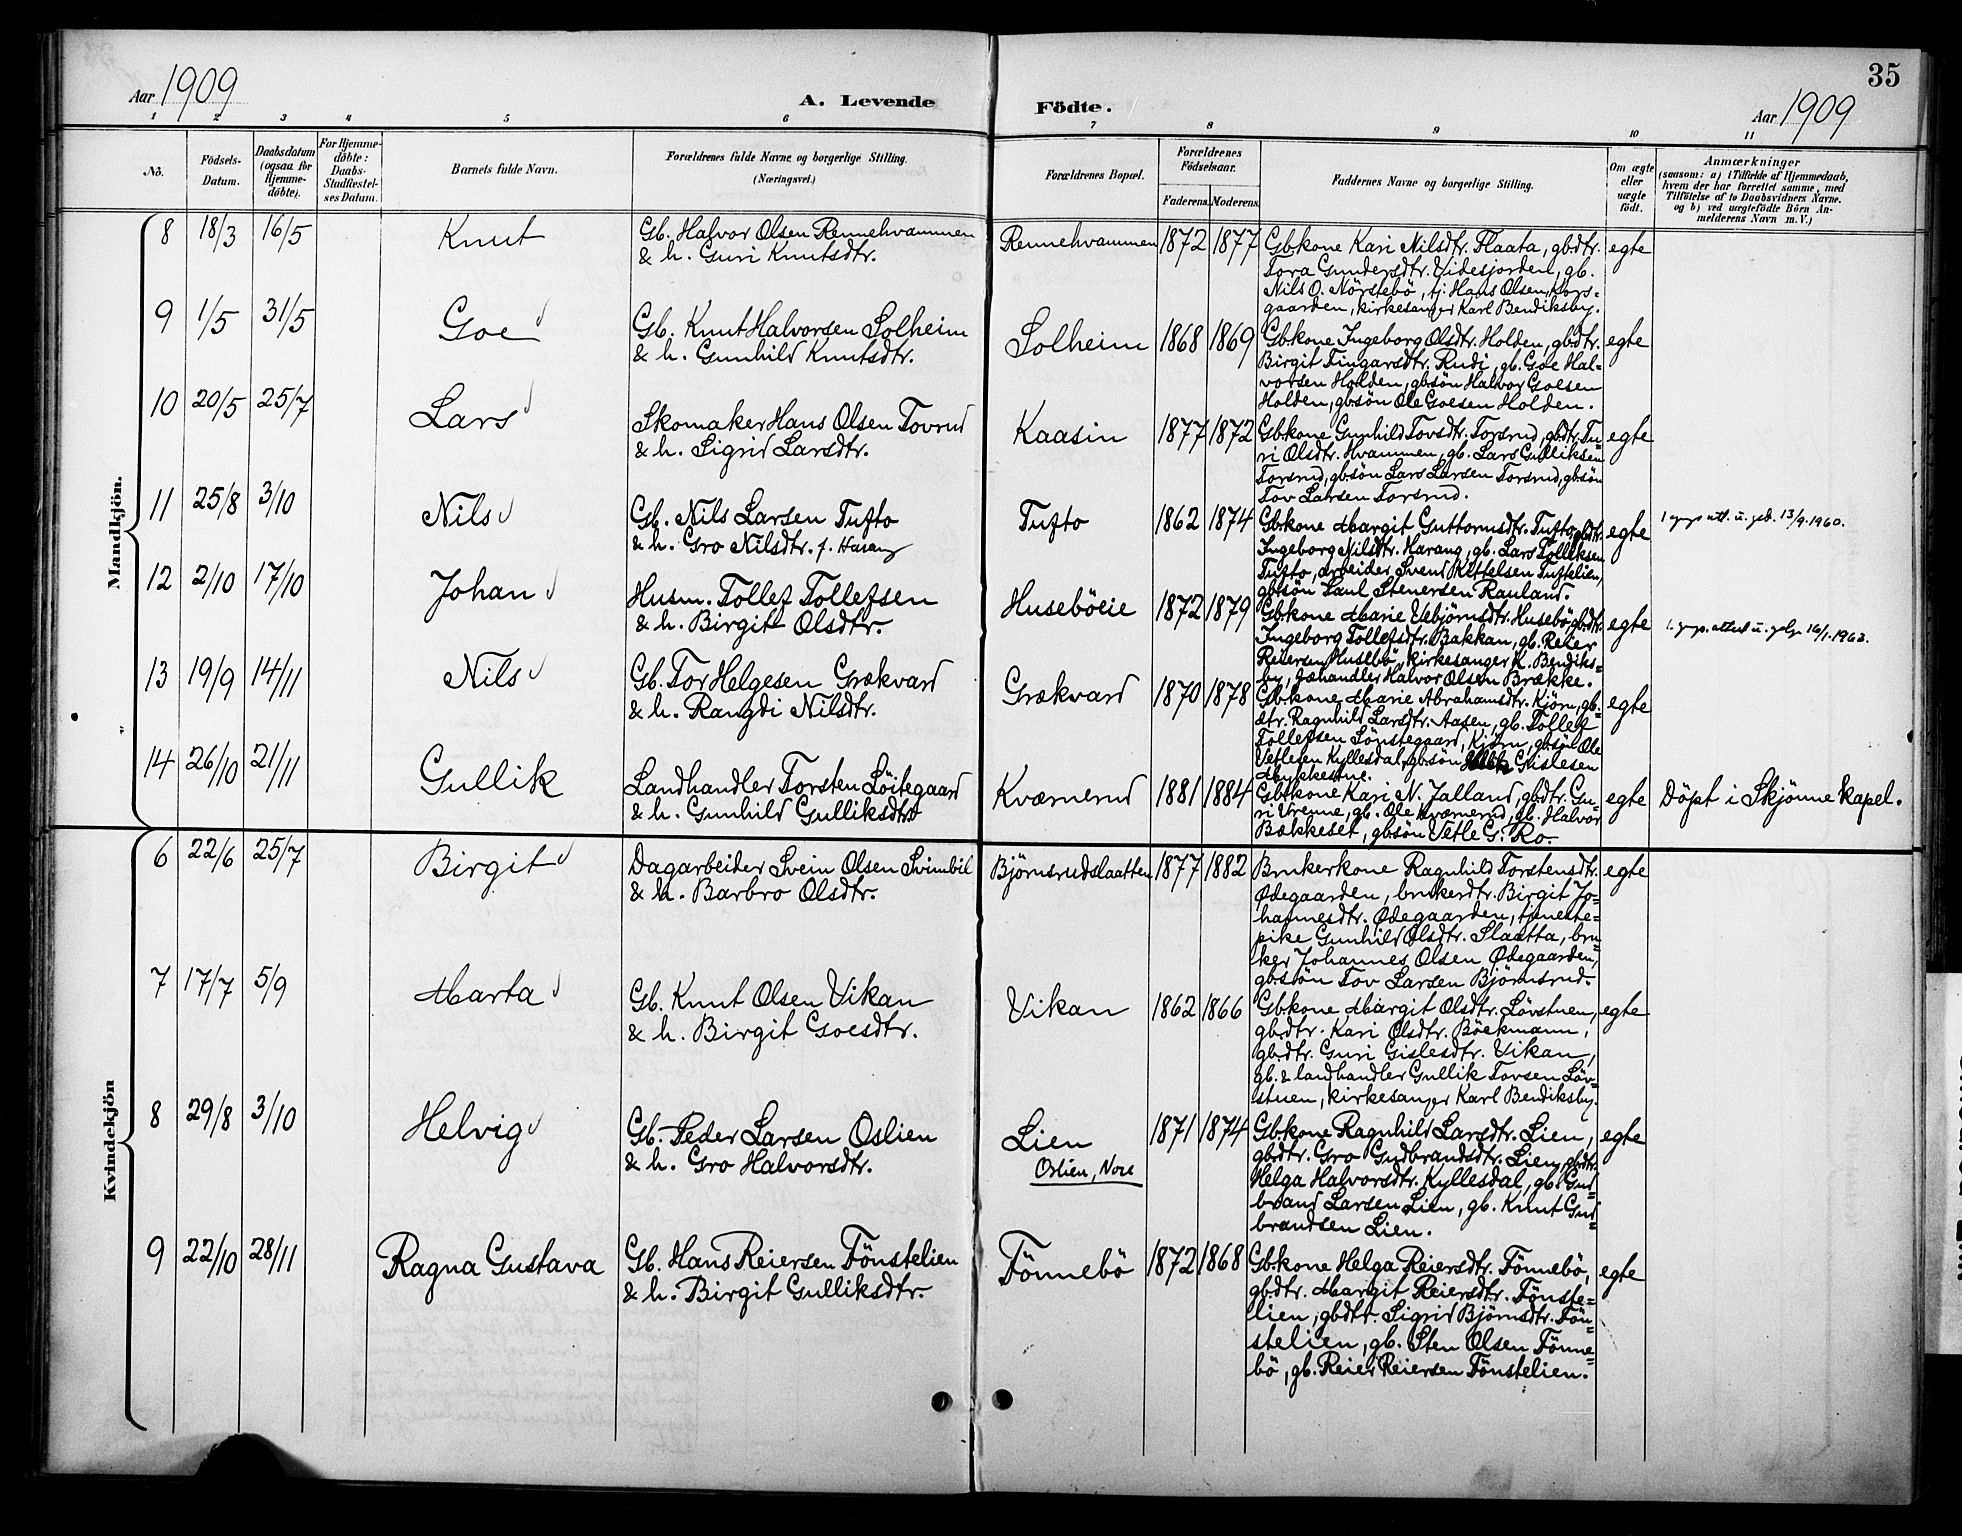 35
Aar 1909
A. Levende
Födte.
Aar 1909
1 2 3 4 5 6 7 8 9 10 11
No.
Födsels-
Datum.
Daabsdatum
(ogsaa for
Hjemme-
döbte).
For Hjemme-
döbte:
Daabs-
Stadfæstel-
ses Datum.
Barnets fulde Navn.
Forældrenes fulde Navne og borgerlige Stilling.
(Næringsvei.)
Forældrenes Bopæl.
Forældrenes
Födselsaar.
Faderens.
Moderens.
Faddernes Navne og borgerlige Stilling.
Om ægte
eller
uægte
födt.
Anmærkninger
(saasom: a) i Tilfælde af Hjemmedaab,
hvem der har forrettet samme, med
Tilföielse af to Daabsvidners Navne.
og b) ved uægtefödte Börn An-
melderens Navn m. V.)
Mandkjön.
8 18/3 16/5 Knut
Gb. Halvor Olsen Rennehvammen
& h. Guri Knutsdtr.
Rennehvammen 1872 1877
Gbkone Kari Nilsdtr. Flaata, gbdtr.
Tora Gundersdtr. Videsjorden, gb.
Nils O. Nörstebö, tj. Hans Olsen Kors-
gaarden, kirkesanger Karl Bendiksby.
egte
9 1/5 31/5 Goe
Gb. Knut Halvorsen Solheim
& h. Gunhild Knutsdtr.
Solheim 1868 1869
Gbkone Ingeborg Olsdtr. Holden, gbdtr.
Birgit Fingarsdtr. Rudi, gb. Goe Hal-
vorsen Holden, gbsön Halvor Goesen
Holden, gbsön Ole Goesen Holden.
egte
10 20/5 25/7 Lars
Skomaker Hans Olsen Tovrud
& h. Sigrid Larsdtr.
Kaasin 1877 1872
Gbkone Gunhild Tovsdtr. Torsrud, gbdtr. Tu-
ri Olsdtr. Hvammen, gb. Lars Gulliksen
Torsrud, gbsön Lars Larsen Torsrud, gbsön
Tov Larsen Torsrud.
egte
11 25/8 3/10 Nils
Gb. Nils Larsen Tufto
& h. Gro Nilsdtr. f. Harang
Tufto 1862 1874
Gbkone Margit Guttormsdtr. Tufto, gbdtr.
Ingeborg Nilsdtr. Harang, gb. Lars Tolleksen
Tufto, arbeider Svend Kittelsen Tuftelien,
gbsön Paul Stenersen Rauland.
egte
13/9-1960.
12 2/10 17/10 Johan
Husm. Tollef Tollefsen
& h. Birgit Olsdtr.
Huseböeie 1872 1879
Gbkone Marie Vebjörnsdtr. Husebö, gbdtr.
Ingeborg Tollefsdtr. Bakkan, gb. Reier
Reiersen Husebö, kirkesanger K. Bendiks-
by, Jæhandler Halvor Olsen Brække.
egte
16/1-1963.
13 19/9 14/11 Nils
Gb. Tor Helgesen Grækvard
& h. Rangdi Nilsdtr.
Grækvard 1870 1878
Gbkone Marie Abrahamsdtr. Kjörn, gb.-
dtr. Ragnhild Larsdtr. Aasen, gb. Tollef
Tollefsen Sönstegaard, Kjörn, gbsön Ole
Vetlesen Kyllesdal, gbsön Gislesen
Mykkestue.
egte
14 26/10 21/11 Gullik
Landhandler Torsten Löitegaard
& h. Gunhild Gulliksdtr
Kværnerud 1881 1884
Gbkone Kari N. Jalland, gbdtr. Gu-
ri Vrenne, gb. Ole Kværnerud, gb. Halvor
Bækkeset, gbsön Vetle G. Ro.
egte
Döpt i Skjönne kapel.
Kvindekjön
6 22/6 25/7 Birgit
Dagarbeider Svein Olsen Svimbil
& h. Barbro Olsdtr.
Björnsrudslaatten 1877 1882
Brukerkone Ragnhild Torstensdtr.
Ødegaarden, brukerdtr. Birgit Jo-
hannesdtr. Ødegaarden, tjeneste-
pike Gunhild Olsdtr. Slaatta, bru-
ker Johannes Olsen Ødegaarden,
gbsön Tov Larsen Björnsrud.
egte
7 17/7 5/9 Marta
Gb. Knut Olsen Vikan
& h. Birgit Goesdtr.
Vikan 1862 1866
Gbkone Margit Olsdtr. Lövstuen,
gbdtr. Kari Olsdtr. Böekmann,
gbdtr. Guri Gislesdtr. Vikan,
gb. & landhandler Gullik Tovsen Löv-
stuen, kirkesanger Karl Bendiksby.
egte
8 29/8 3/10 Helvig
Gb. Peder Larsen Oslien
& h. Gro Halvorsdtr.
Lien
Oslien, Nore
1871 1874
Gbkone Ragnhild Larsdtr. Lien,
gbdtr. Gro Gudbrandsdtr. Lien, gbdtr.
Helga Halvorsdtr. Kyllesdal, gb. Gud-
brand Larsen Lien, gb. Knut Gud-
brandsen Lien.
egte
9 22/10 28/11 Ragna Gustava
Gb. Hans Reiersen Fönstelien
& h. Birgit Gulliksdtr.
Fönnebö 1872 1868
Gbkone Helga Reiersdtr. Fönnebö,
gbdtr. Margit Reiersdtr. Fönste-
lien, gbdtr. Sigrid Björnsdtr. Fön-
stelien, gb. Sten Olsen Fönne-
bö, gb. Reier Reiersen Fönstelien.
egte